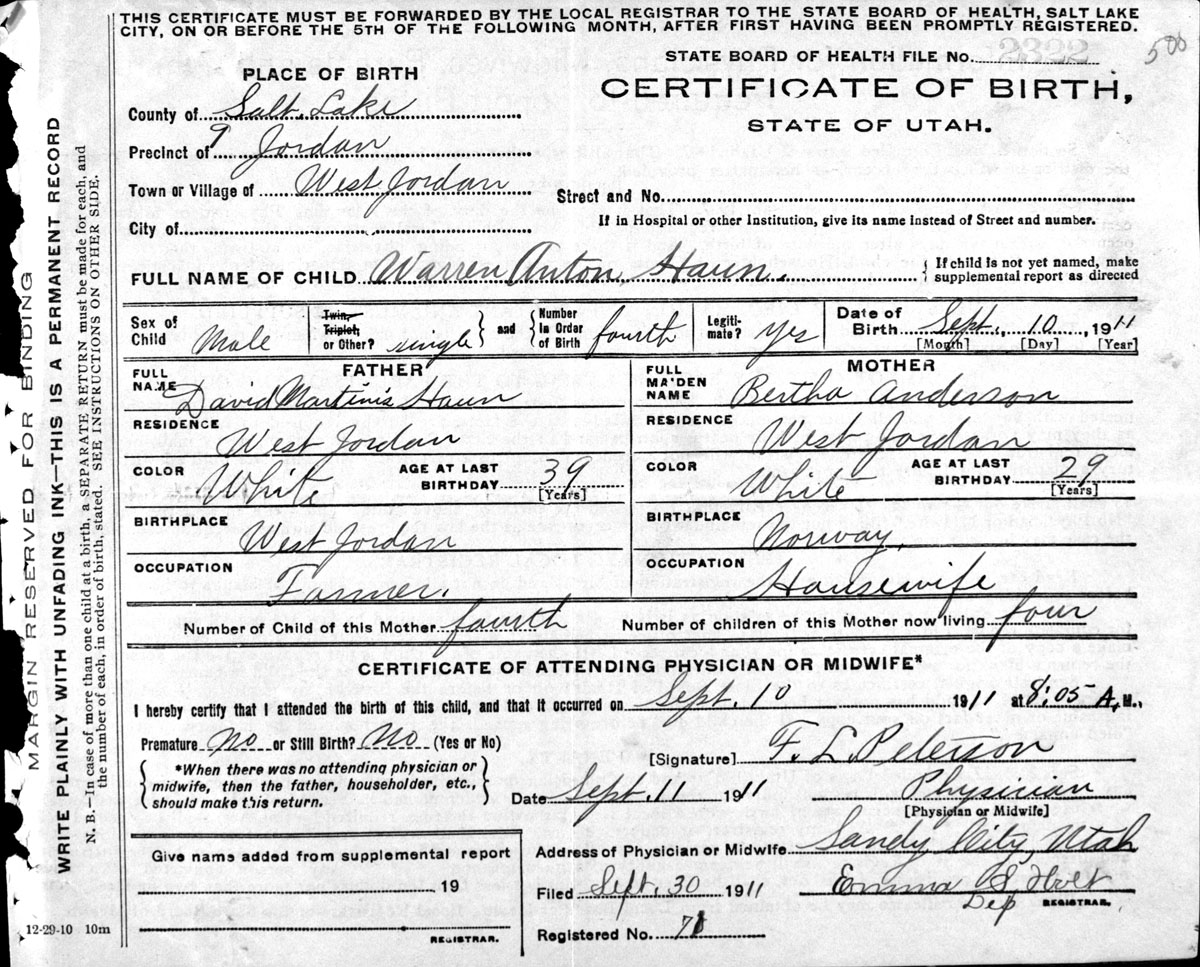 THIS CERTIFICATE MUST BE FORWARDED BY THE LOCAL REGISTRAR TO THE STATE BOARD OF HEALTH, SALT LAKE
CITY, ON OR BEFORE THE 5TH OF THE FOLLOWING MONTH, AFTER FIRST HAVING BEEN PROMPTLY REGISTERED.
STATE BOARD OF HEALTH FILE No.
500
PLACE OF BIRTH
CERTIFICATE OF BIRTH,
STATE OF UTAH.
County of Salt Lake
Precinct of 9 Jordan
Town or Village of West Jordan
Street and No.
If in Hospital or other Institution, give its name instead of Street and number.
City of
FULL NAME OF CHILD Warren Anton Haun. { If child is not yet named, make
supplemental report as directed
Sex of Child Male
Twin, Triplet, or Other? single } and { Number in Order of Birth fourth
Legiti-mate? yes
Date of Birth Sept. 10 1911
[Month] [Day] [Year]
FATHER
FULL NAME David Martinis Haun
RESIDENCE West Jordan
COLOR White AGE AT LAST BIRTHDAY 39 [Years]
BIRTHPLACE West Jordan
OCCUPATION Farmer.
MOTHER
FULL MAIDEN NAME Bertha Anderson
RESIDENCE West Jordan
COLOR White AGE AT LAST BIRTHDAY 29 [Years]
BIRTHPLACE Norway.
OCCUPATION Housewife
Number of Child of this Mother fourth Number of children of this Mother now living four
CERTIFICATE OF ATTENDING PHYSICIAN OR MIDWIFE*
I hereby certify that I attended the birth of this child, and that it occurred on Sept. 10 1911 at 8:05 A, M.
Premature No or Still Birth? No (Yes or No)
[Signature] F. L. Peterson
{ *When there was no attending physician or
midwife, then the father, householder, etc.,
should make this return. }
Date Sept. 11 1911 Physician
[Physician or Midwife]
Give name added from supplemental report
19
REGISTRAR.
Address of Physician or Midwife Sandy City, Utah
Filed Sept. 30 1911 Emma S. Holt
Dep REGISTRAR.
Registered No. 71
12-29-10 10m
MARGIN RESERVED FOR BINDING
WRITE PLAINLY WITH UNFADING INK—THIS IS A PERMANENT RECORD
N. B.—In case of more than one child at a birth, a SEPARATE RETURN must be made for each, and
the number of each, in order of birth, stated. SEE INSTRUCTIONS ON OTHER SIDE.